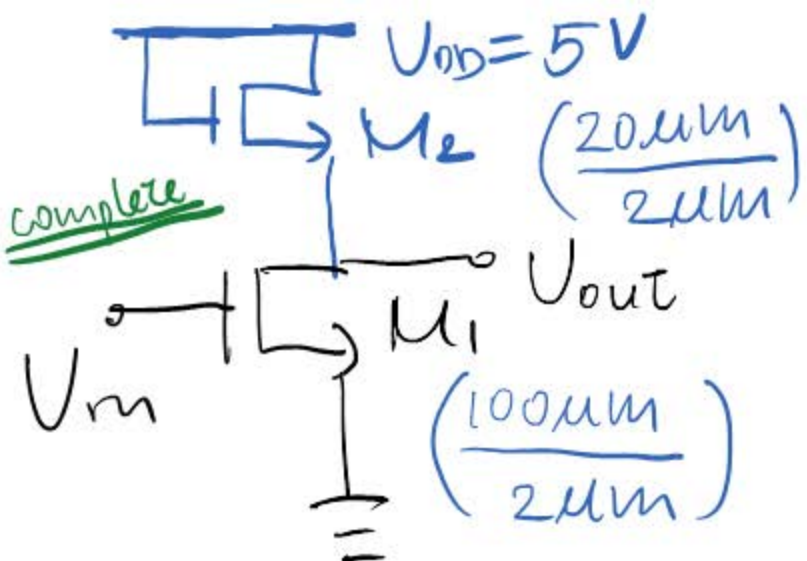 VDD = 5V
M2
(20μm / 2μm)
complete
Vout
M1
Vin
(100μm / 2μm)